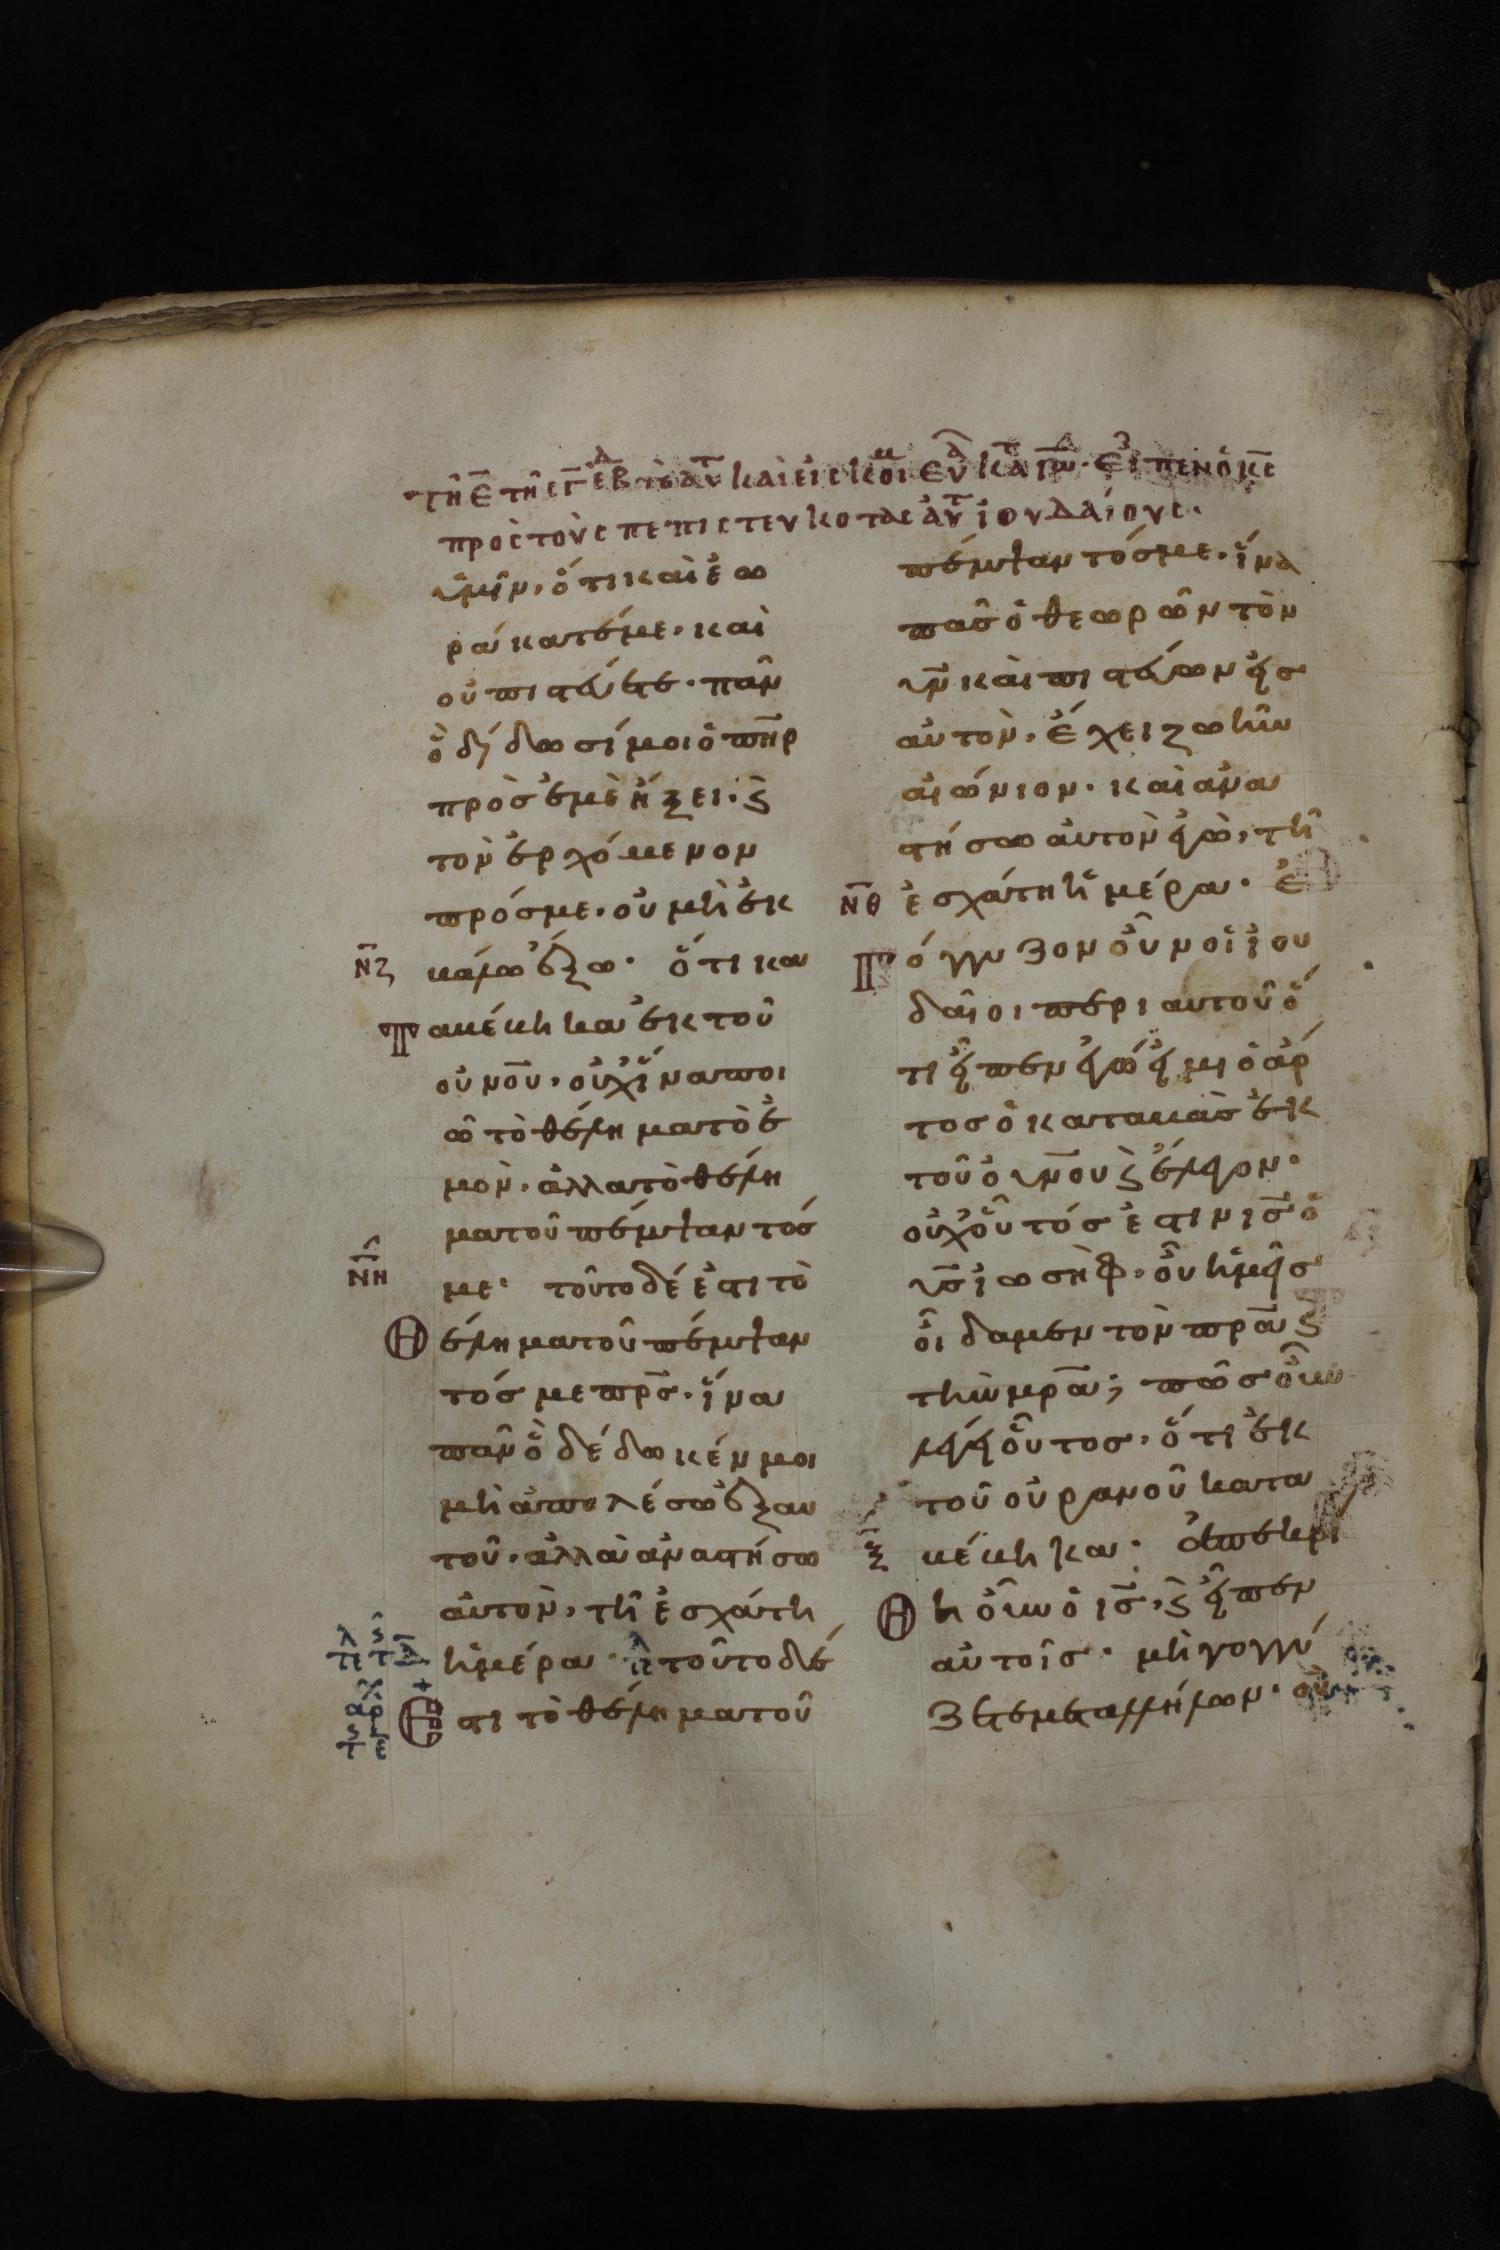 προς τους πεπιστευκοτας αυτ ιουδαίους.
ὑμῖν, ὅτι καὶ ἑω
ράκατέ με, καὶ
οὐ πιστεύετε. πᾶν
ὃ δίδωσί μοι ὁ πηρ
πρὸς ἐμὲ ἥξει. ϗ
τὸν ἐρχόμενον
πρός με, οὐ μὴ ἐκ
ΝΖ
βάλω ἔξω. ὅτι κα
Ταβέβηκα ἐκ τοῦ
ουνου, οὐχ ἵνα ποι
ῶ τὸ θέλημα τὸ ἐ
μὸν, ἀλλα τὸ θέλη
μα τοῦ πέμψαντός
ΝΗ
με. τοῦτο δέ ἐστι τὸ
Θέλημα τοῦ πέμψαν
τός με πρς. ἵνα
πᾶν ὃ δέδωκέν μοι
μὴ ἀπολέσω ἐξ αυ
τοῦ. ἀλλὰ ἀναστήσω
αὐτὸν, τῆ ἐσχάτη
ἡμέρα. τοῦτο δέ
Ἐστι τὸ θέλημα τοῦ
πέμψαντός με. ἵνα
πᾶς ὁ θεωρῶν τὸν
υν καὶ πιστεύων εἰς
αὐτὸν, ἔχει ζωὴν
αἰώνιον. καὶ ἀνα
στήσω αὐτὸν ἐγὼ, τῆ
ΝΘ
ἐσχάτη ἡμέρα. ἐ
Γόγγυζον οὖν οἱ ιου
δαῖοι περι αυτοῦ ὅ
τι εἶπεν ἐγώ εἰμι ὁ ἄρ
τος ὁ καταβὰς ἐκ
τοῦ ουνου ϗ ἔλεγον.
οὐχ οὗτός ἐστιν ις ὁ
υς ιωσὴφ, οὗ ἡμεῖς
οἴδαμεν τὸν πρα ϗ
τὴν μρα; πῶς οὖν
λέγει οὗτος, ὅτι ἐκ
τοῦ οὐρανοῦ κατα
Ξ
βέβηκα. ἀπεκρί
Θη οὖν ὁ ις, ϗ εἶπεν
αὐτοῖς. μὴ γογγύ
ζετε μετ αλλήλων. οὐ